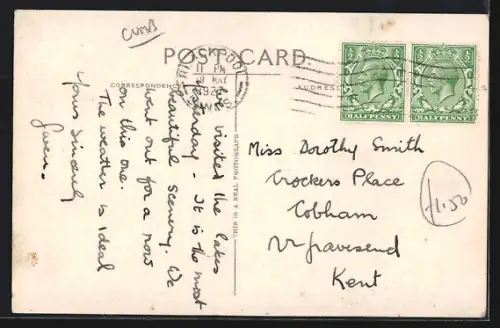 CUMB
POST CARD.
CORRESPONDENCE
ADDRESS
BLACKPOOL
11 PM
MAY
HALFPENNY
HALFPENNY
We visited the lakes
yesterday - It is the most
beautiful scenery. We
went out for a row
on this one.
The weather is ideal
Yours Sincerely
Gwen.
THIS IS A REAL PHOTOGRAPH
Miss Dorothy Smith
Crockers Place
Cobham
Nr Gravesend
Kent
£1.50